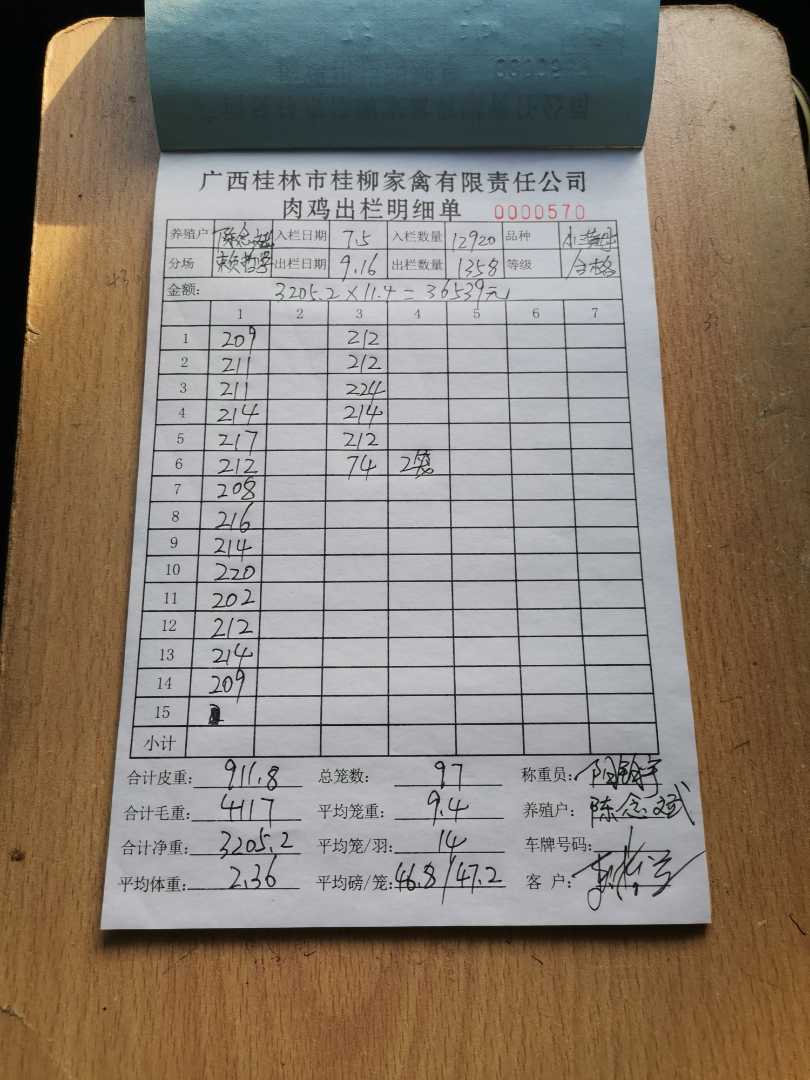 广西桂林市桂柳家禽有限责任公司
肉鸡出栏明细单 0000570
养殖户 陈念斌 入栏日期 7.5 入栏数量 12920 品种
分场 出栏日期 9.16 出栏数量 1358 等级 合格
金额: 3205.2×11.4=36539元
1 2 3 4 5 6 7
1 209 212
2 211 212
3 211 224
4 214 214
5 217 212
6 212 74 2笼
7 208
8 216
9 214
10 220
11 202
12 212
13 214
14 209
15
小计
合计皮重: 911.8 总笼数: 97 称重员:
合计毛重: 4117 平均笼重: 9.4 养殖户: 陈念斌
合计净重: 3205.2 平均笼/羽: 14 车牌号码:
平均体重: 2.36 平均磅/笼: 46.8/47.2 客户: